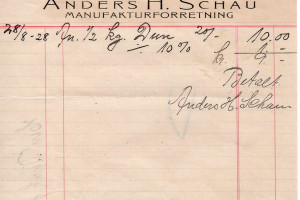 ANDERS H. SCHAU
MANUFAKTURFORRETNING
28/8-28 An. 1/2 kg. Dun 20/- 10.00
÷ 10%
kr. 9.=
Betalt
Anders H. Schau